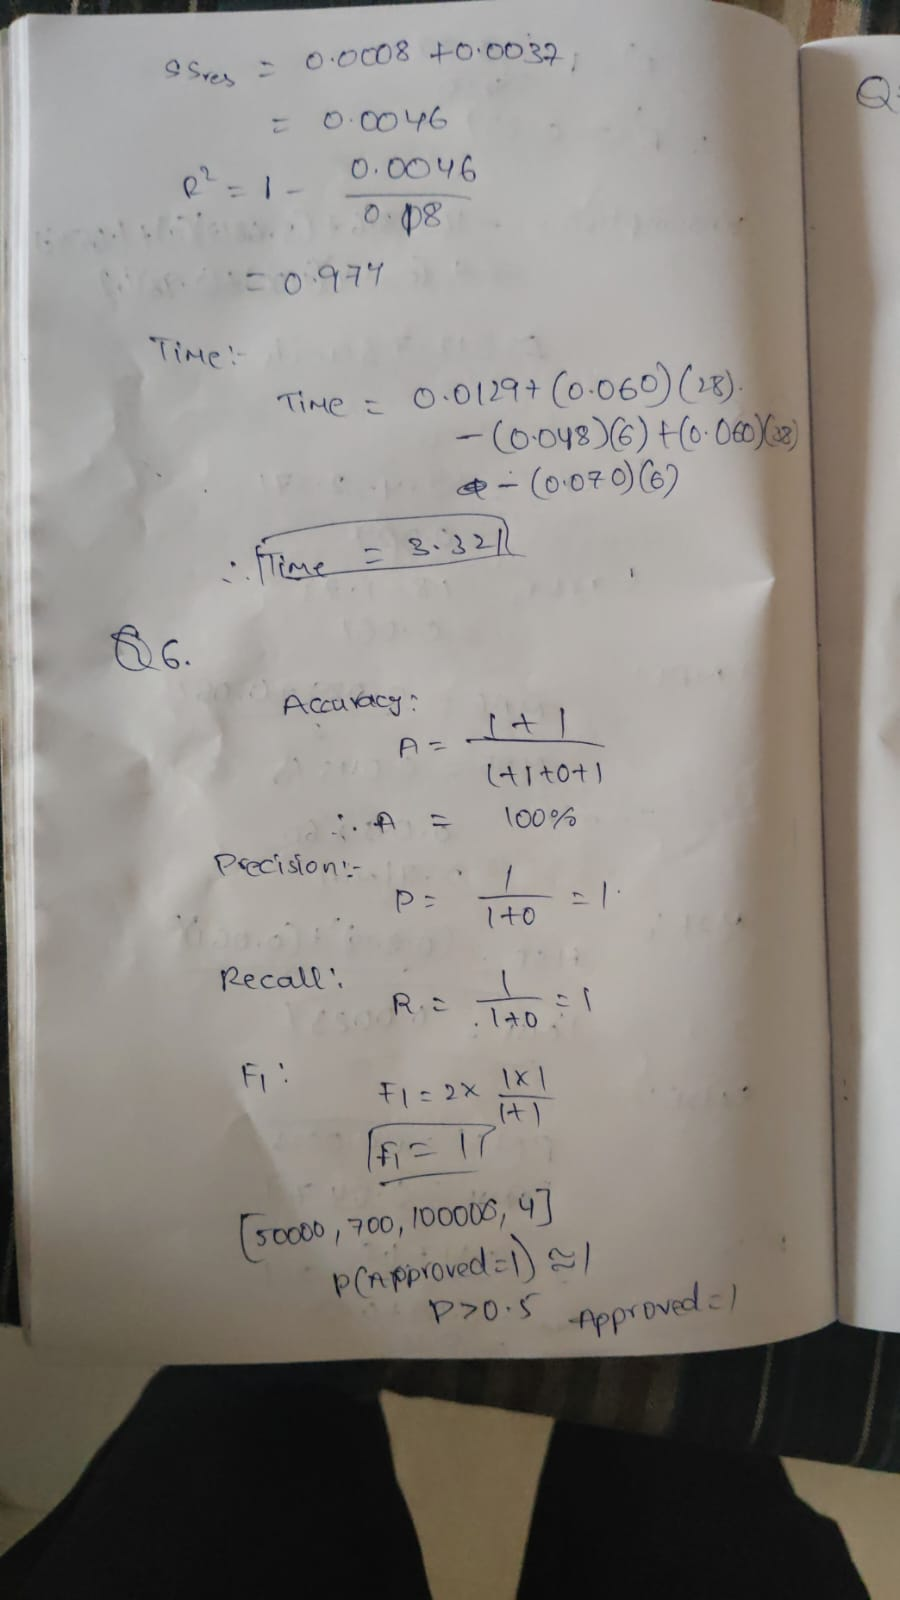 SSres = 0.0008 + 0.0037,
= 0.0046
R² = 1 - 0.0046
0.08
= 0.974
Time:-
Time = 0.0129 + (0.060)(28).
- (0.048)(6) + (0.060)(38)
- (0.070)(6)
∴ Time = 3.32
Q
Q6.
Accuracy:
A = 1+1
1+1+0+1
∴ A = 100%
Precision:-
P = 1 = 1
1+0
Recall:
R = 1 = 1
1+0
F1:
F1 = 2x 1x1
1+1
F1 = 1
[50000, 700, 100000, 4]
P(Approved=1) ≈ 1
P>0.5 Approved = 1